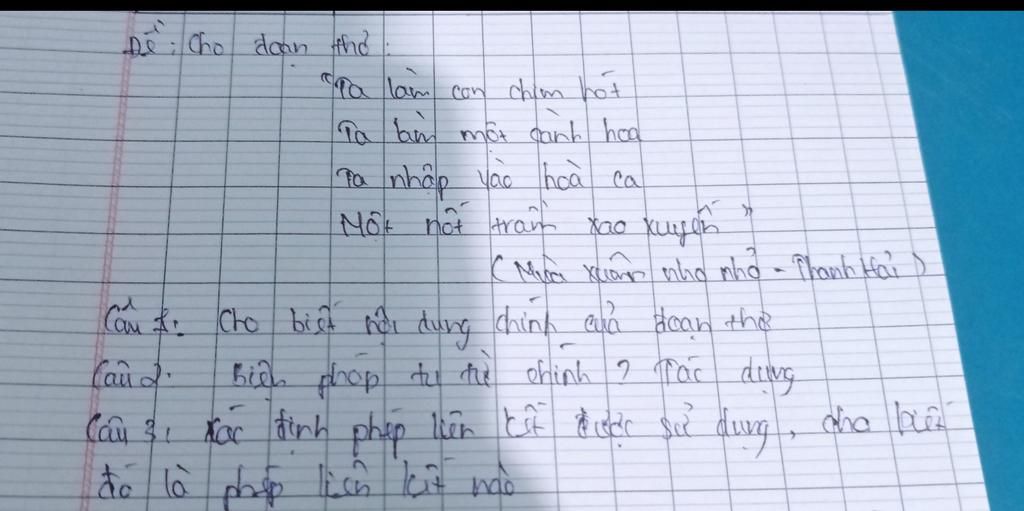 Đề: Cho đoạn thơ:
"Ta làm con chim hót
Ta làm một cành hoa
Ta nhập vào hoà ca
Một nốt trầm xao xuyến"
(Mùa xuân nho nhỏ - Thanh Hải)
Câu 1: Cho biết nội dung chính của đoạn thơ
Câu 2: Biện pháp tu từ chính? Tác dụng
Câu 3: Xác định phép liên kết được sử dụng, cho biết
đó là phép liên kết nào